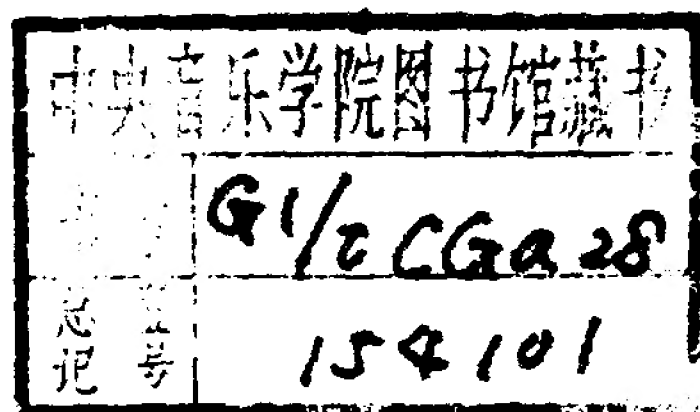 中央音乐学院图书馆藏书
书号 G1/tCGa28
总登记号 154101